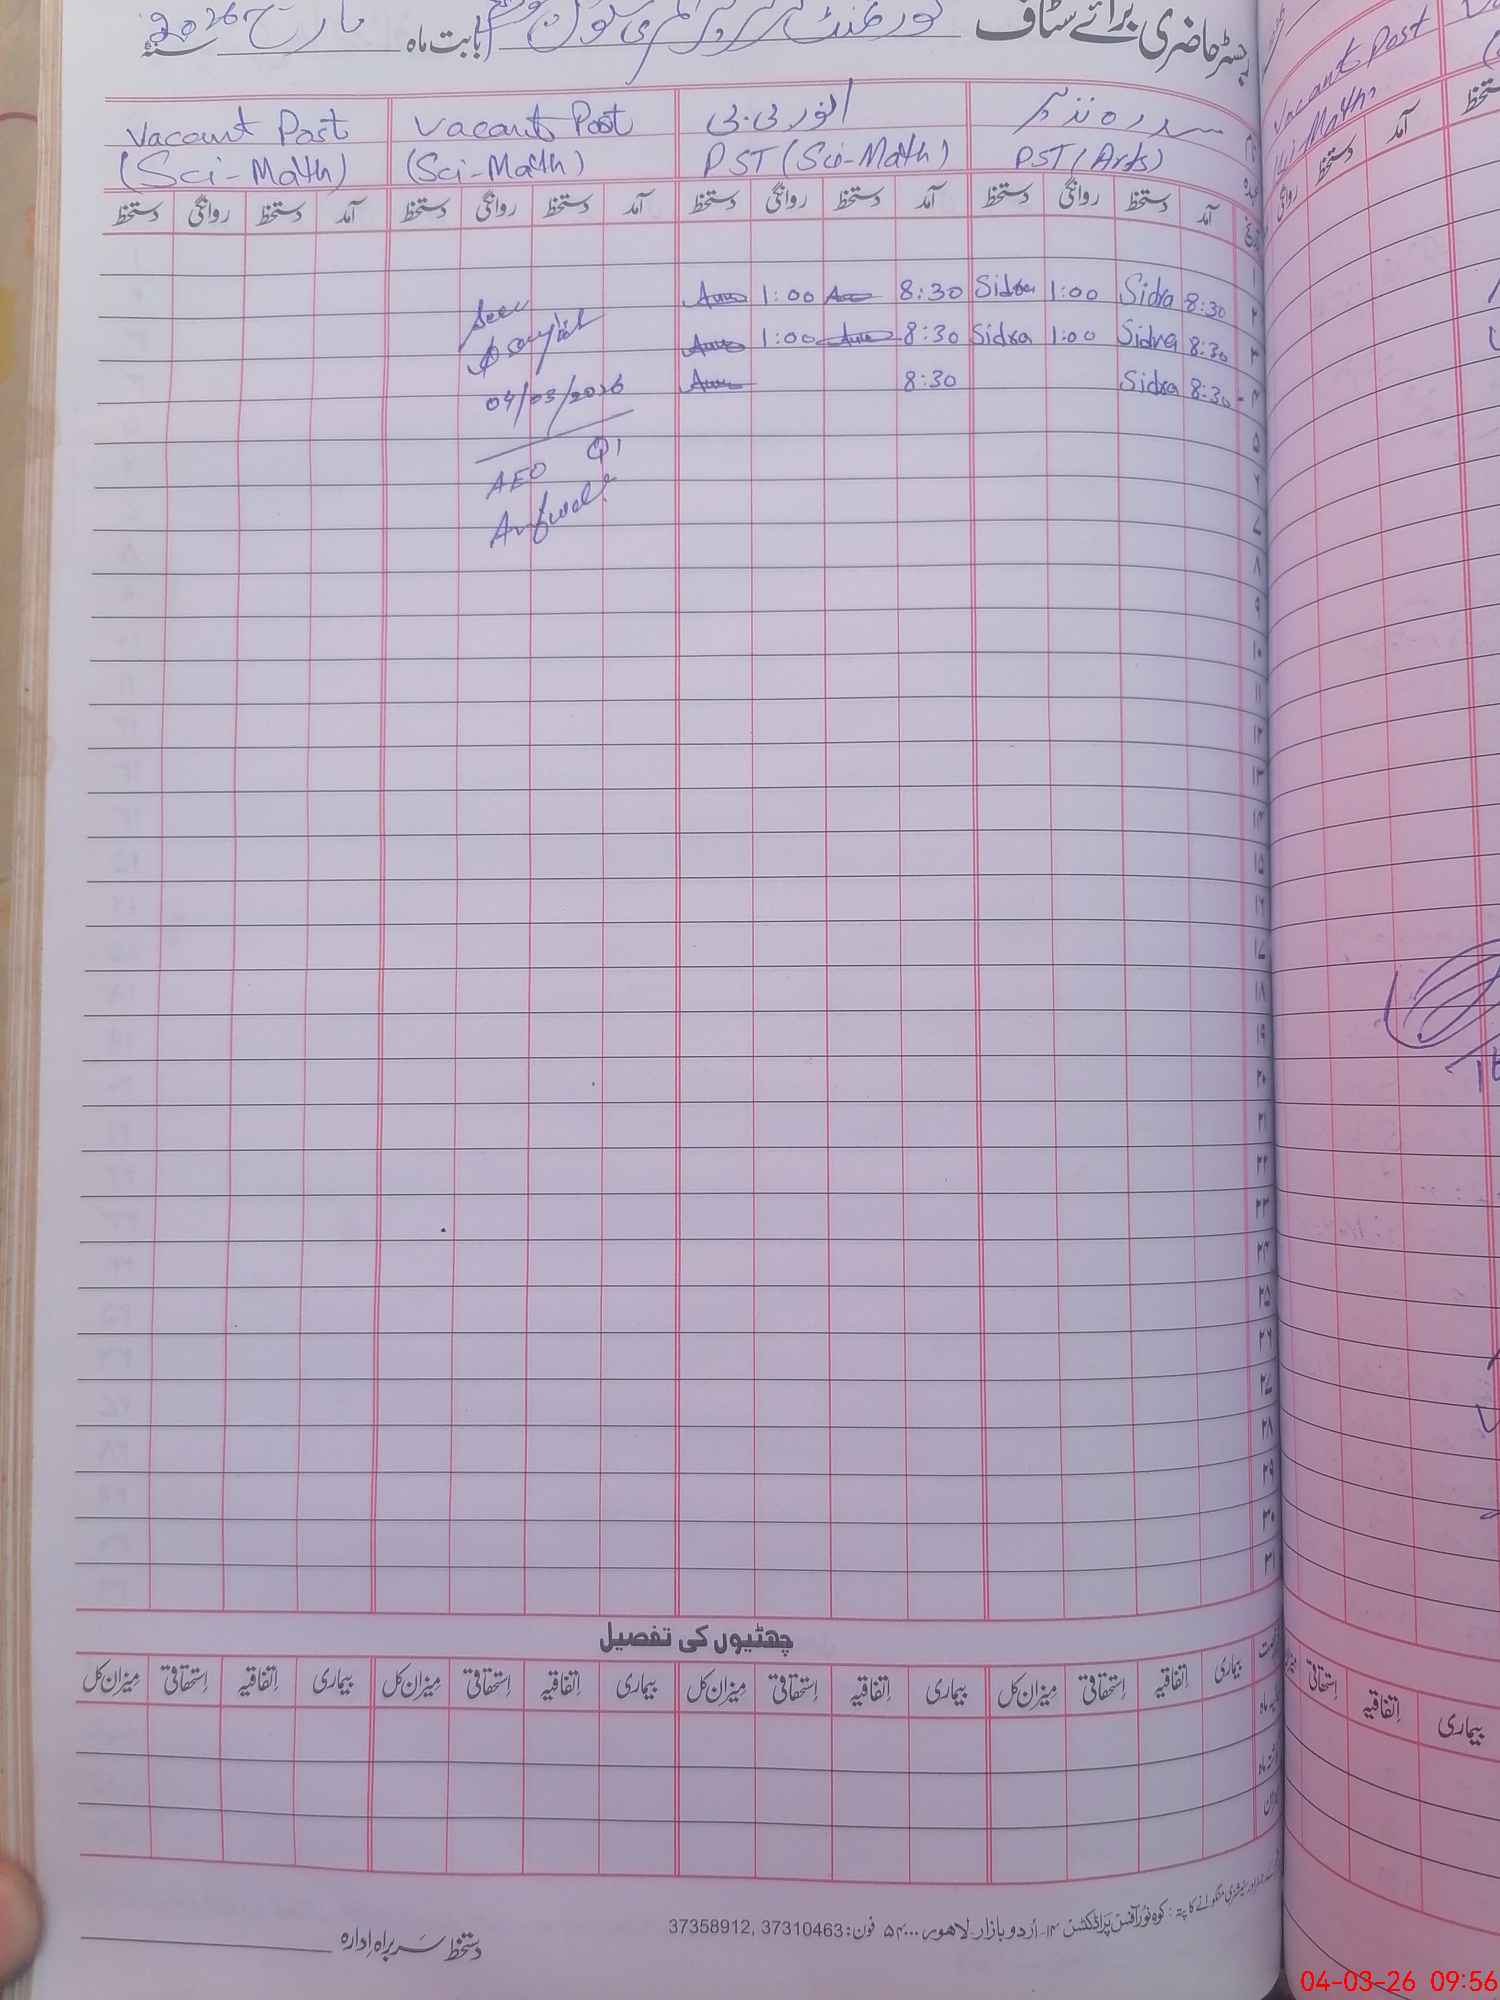 رجسٹر حاضری برائے سٹاف گورنمنٹ گرلز پرائمری سکول بابت ماہ مارچ سنہ 2026
سدرہ نذیر انور بی بی Vacant Post Vacant Post
PST (Arts) PST (Sci-Math) (Sci-Math) (Sci-Math)
آمد دستخط روانگی دستخط آمد دستخط روانگی دستخط آمد دستخط روانگی دستخط آمد دستخط روانگی دستخط
۱
۲ 8:30 Sidra 1:00 Sidra 8:30 1:00
۳ 8:30 Sidra 1:00 Sidra 8:30 1:00
۴ 8:30 Sidra 8:30
Seen
04/03/2026
AEO
۵
۶
۷
۸
۹
۱۰
۱۱
۱۲
۱۳
۱۴
۱۵
۱۶
۱۷
۱۸
۱۹
۲۰
۲۱
۲۲
۲۳
۲۴
۲۵
۲۶
۲۷
۲۸
۲۹
۳۰
۳۱
چھٹیوں کی تفصیل
بیماری اِتفاقیہ اِستحقاقی مِیزان کل بیماری اِتفاقیہ اِستحقاقی مِیزان کل بیماری اِتفاقیہ اِستحقاقی مِیزان کل بیماری اِتفاقیہ اِستحقاقی مِیزان کل
کوہ نور آفس پراڈکٹس ۱۴۔ اُردو بازار۔ لاہور ۵۴۰۰۰ فون: 37310463 ,37358912
دستخط سربراہ اِدارہ
Vacant Post
Sci-Math
آمد دستخط روانگی
بیماری اِتفاقیہ اِستحقاقی
04-03-26 09:56